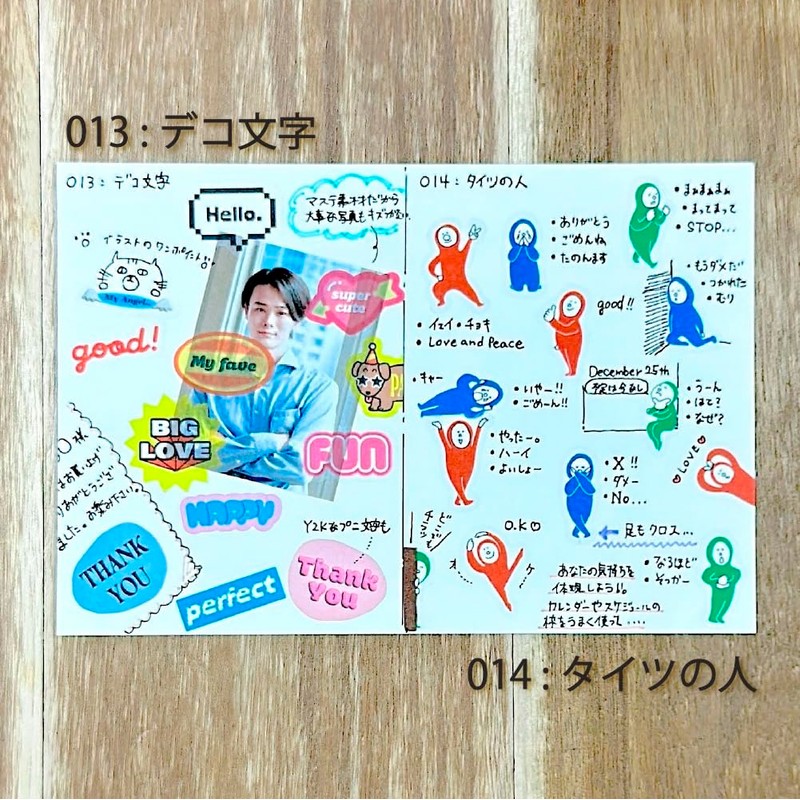 013 : デコ文字
013 : デコ文字
Hello.
マステ素材だから
大事な写真もキズつかない
イラストのワンポイントに!
My Angel
super
cute
good!
My fave
BIG
LOVE
FUN
様
お買い上げ
ありがとうござい
ました。お気に召され
HAPPY
Y2Kなプニ文字も
THANK
YOU
perfect
Thank
You
014 : タイツの人
・イェイ・チョキ
・Love and Peace
・ありがとう
・ごめんね
・たのんます
・まぁまぁまぁ
・まってまって
・STOP...
・もうダメだ
・つかれた
・むり
good!!
・キャー
・いやー!!
・ごめーん!!
December 25th
予定は今なし
・うーん
・はて?
・なぜ?
・やったー。
・ハーイ
・よいしょー
・X!!
・ダメー
・No...
← 足もクロス...
♡LOVE♡
O.K♡
オ
ケ
・なるほど
・そっかー
あなたの気持ちを
体現しよう!!
カレンダーやスケジュールの
枠をうまく使って....
014 : タイツの人